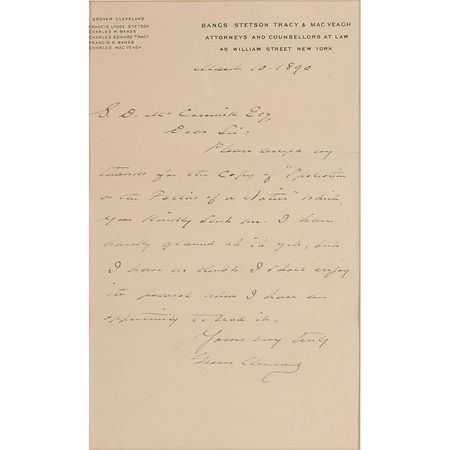 GROVER CLEVELAND
FRANCIS LYNDE STETSON
CHARLES H. BANGS
CHARLES EDWARD TRACY
FRANCIS S. BANGS
CHARLES MAC VEAGH
BANGS STETSON TRACY & MAC VEAGH
ATTORNEYS AND COUNSELLORS AT LAW
45 WILLIAM STREET NEW YORK
March 10. 1890
S. D. McCormick Esq,
Dear Sir:
Please accept my
thanks for the copy of "Spoliation
or the Policies of a Nation" which
you kindly sent me. I have
hardly glanced at it yet, but
I have no doubt I shall enjoy
its perusal when I have an
opportunity to read it.
Yours very truly
Grover Cleveland